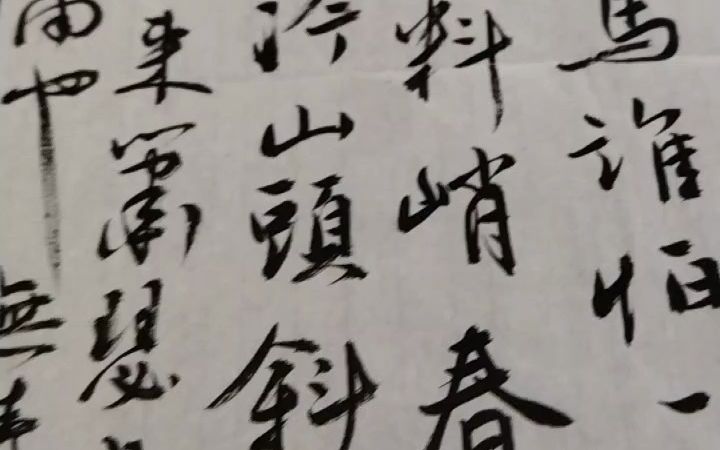 馬誰怕一
料峭春
冷山頭斜
来蕭瑟
雨也無